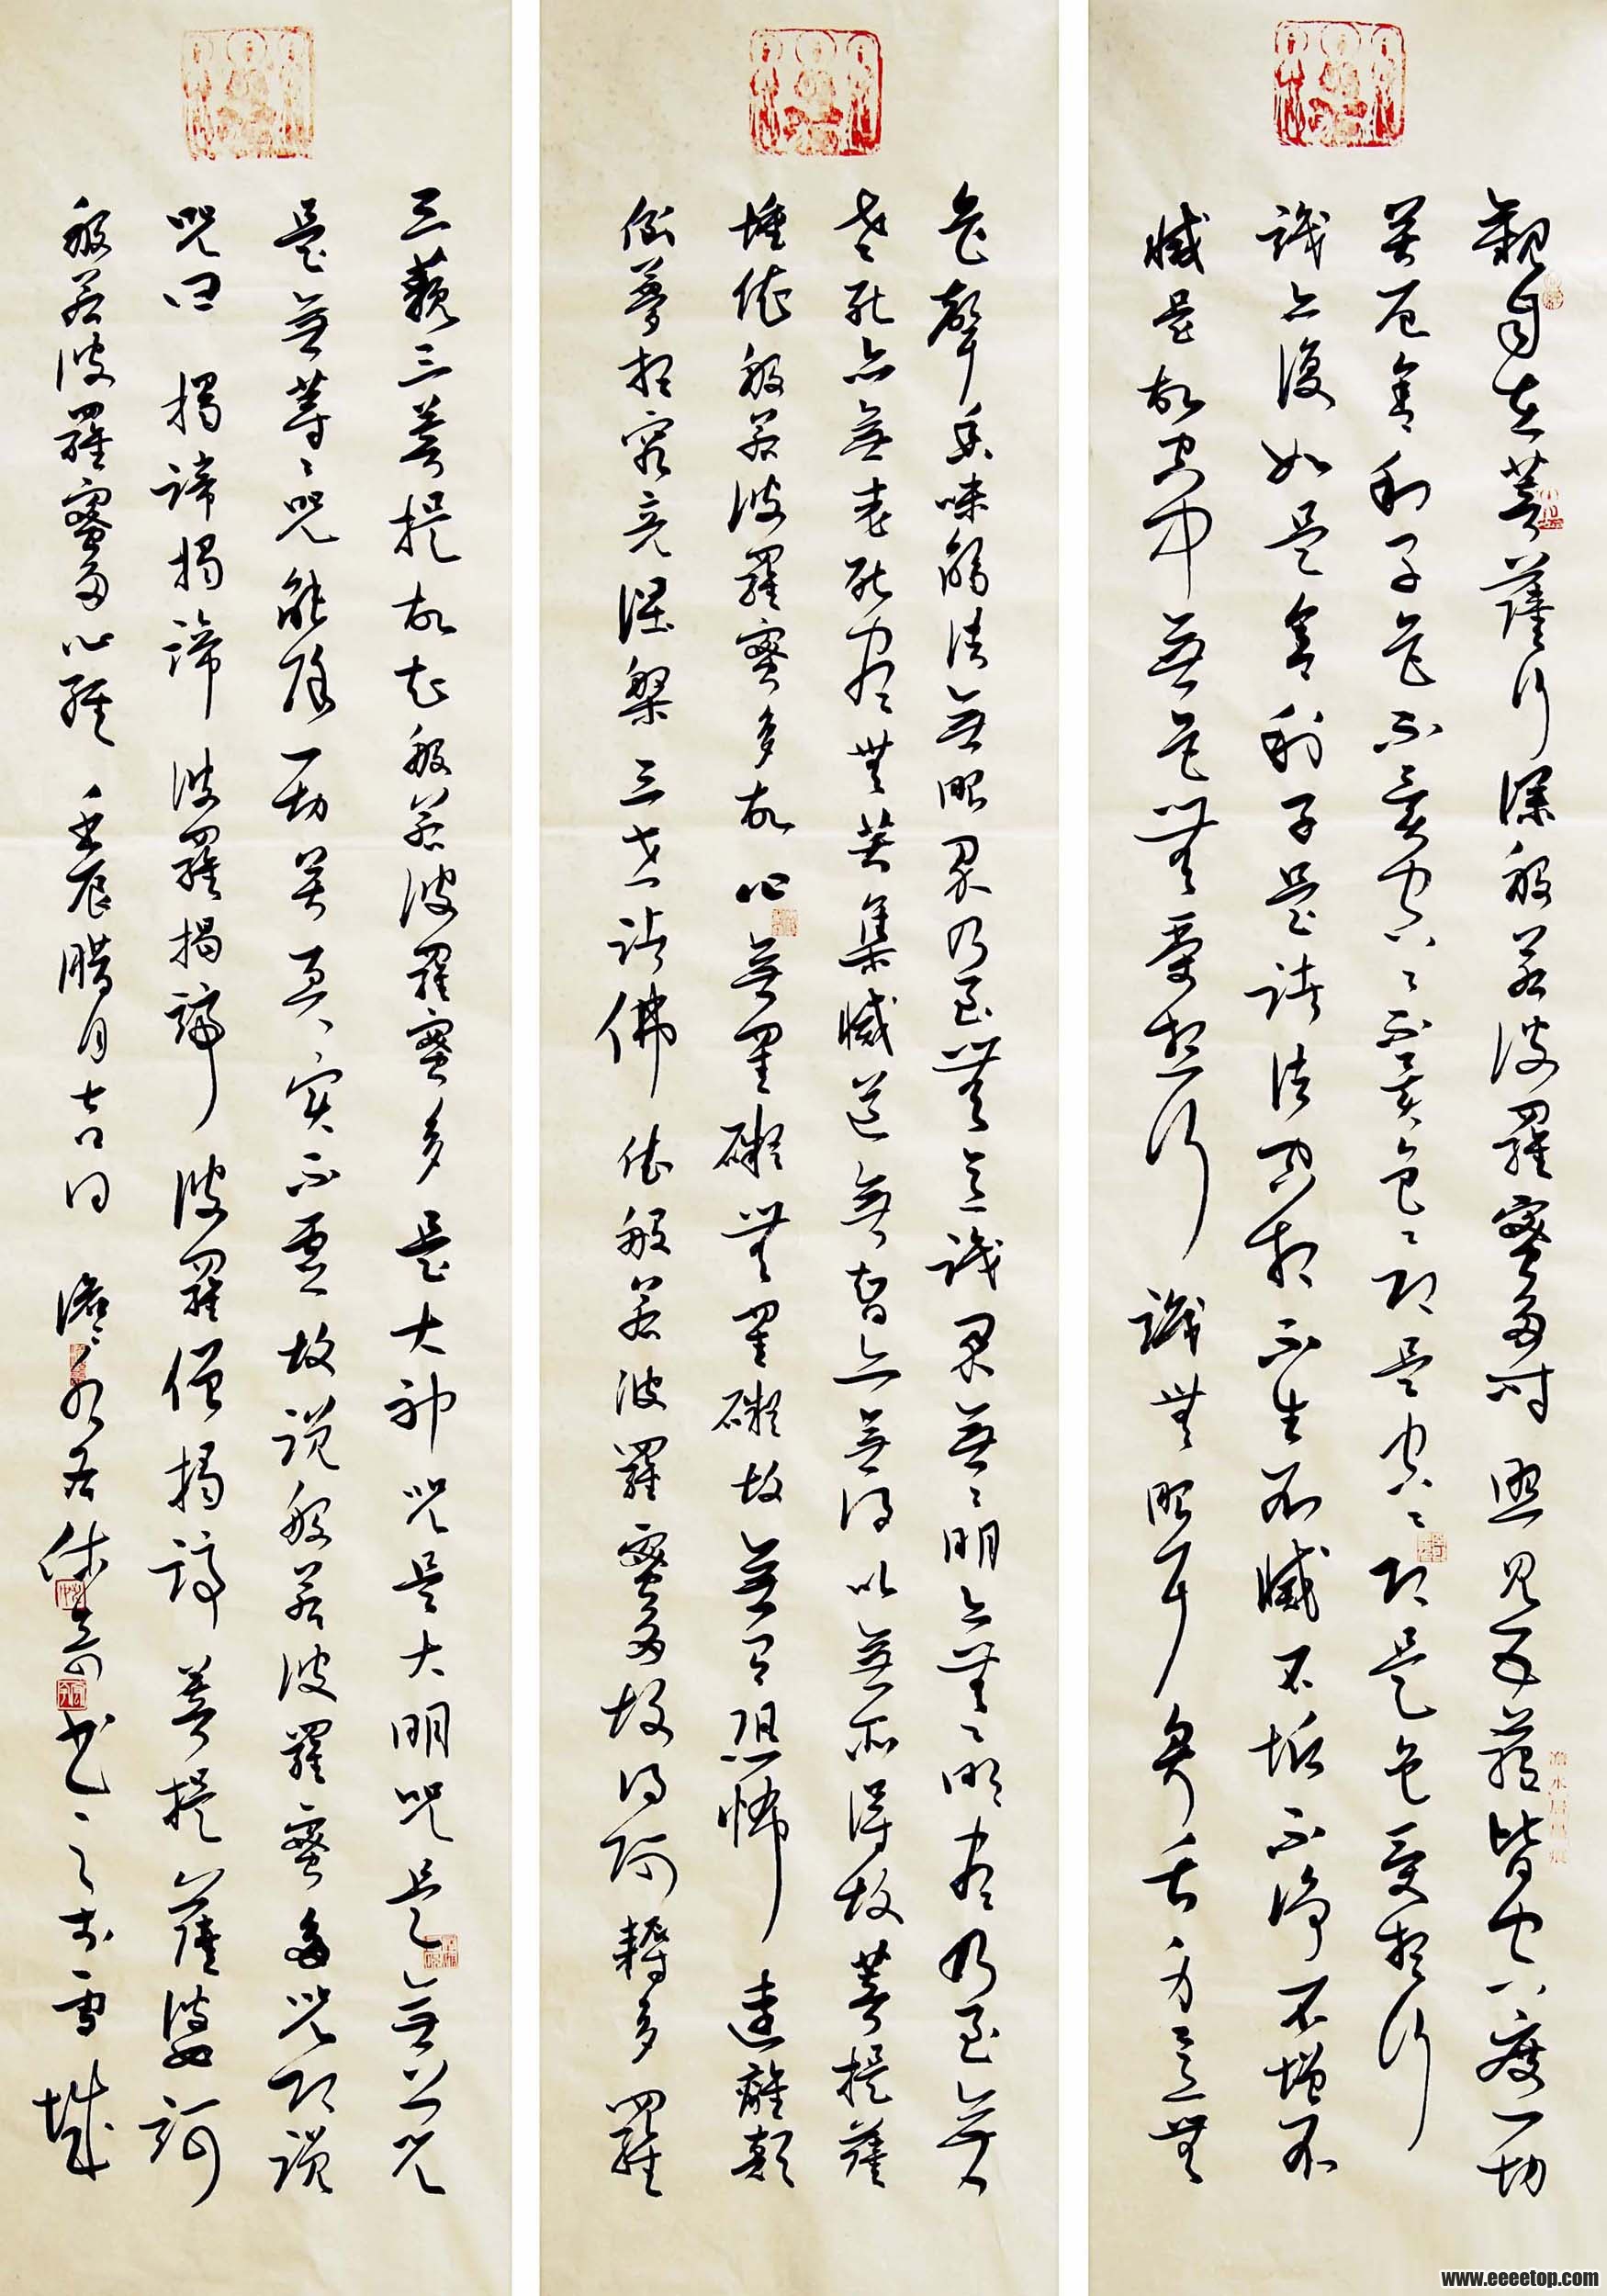 觀自在菩薩行深般若波羅蜜多時照見五蘊皆空度一切
苦厄舍利子色不異空〻不異色〻即是空〻即是色受想行
識亦復如是舍利子是諸法空相不生不滅不垢不淨不增不
減是故空中無色無受想行識無眼耳鼻舌身意無
色聲香味觸法無眼界乃至無意識界無〻明亦無〻明盡乃至無
老死亦無老死盡無苦集滅道無智亦無得以無所得故菩提薩
埵依般若波羅蜜多故心無罣礙無罣礙故無有恐怖遠離顛
倒夢想究竟涅槃三世諸佛依般若波羅蜜多故得阿耨多羅
三藐三菩提故知般若波羅蜜多是大神咒是大明咒是無上咒
是無等〻咒能除一切苦真實不虛故說般若波羅蜜多咒即說
咒曰 揭諦揭諦 波羅揭諦 波羅僧揭諦 菩提薩婆訶
般若波羅蜜多心經 壬辰腊月吉日 澹水居 书之于雪城
www.eeeetop.com